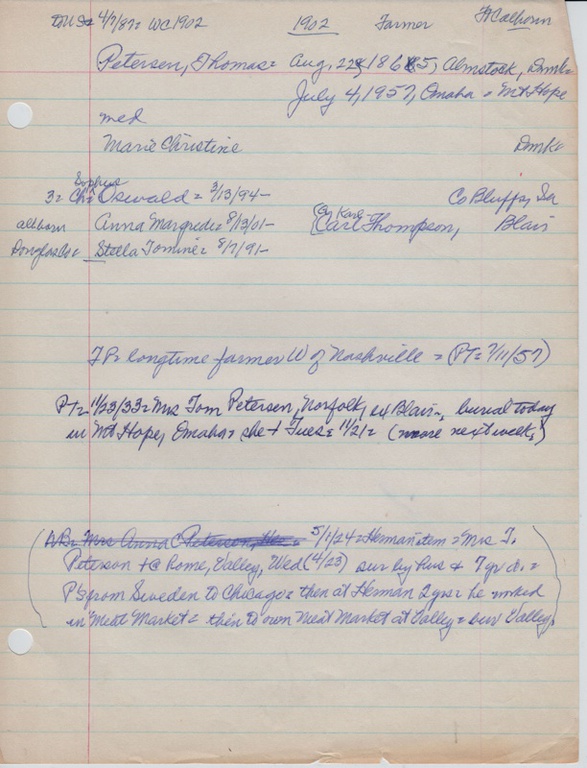 4/7/87= WC 1902 1902 Farmer Ft Calhoun
Petersen, Thomas= Aug, 22, 1865, Almstock, Dmk=
July 4, 1957, Omaha = Mt Hope
med
Marie Christine Dmk
Sophus
3= Ch= Oswald = 3/13/94- Co Bluffs, Ia
all born Anna Margrede= 8/13/01- (or Karl- Carl Thompson, Blair
Douglas Co= Stella Tomine= 8/7/91-
TP= longtime farmer W of Nashville = (PT= 7/11/57)
PT= 11/23/33= Mrs Tom Petersen, Norfolk, ex Blair-, burial today
in Mt Hope, Omaha= she + Tues= 11/21= (more next week)
(NB= Mrs Anna C Peterson, = 5/1/24= Herman item= Mrs T.
Peterson + @ home, Valley, Wed (4/23) sur by hus + 7 gr ch. =
P's from Sweden to Chicago= then at Herman 2 yrs= he worked
in Meat Market= then to own Meat Market at Valley= bur Valley)